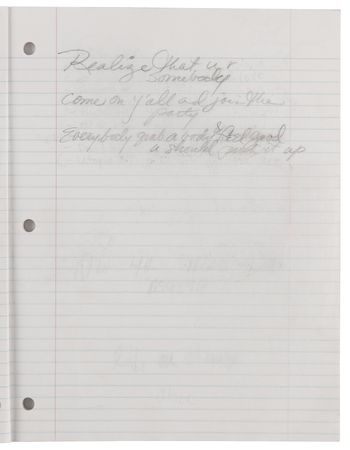 Realize that ur
somebody
come on y'all ad join the
party
Everybody grab a body & feel good
a should it up